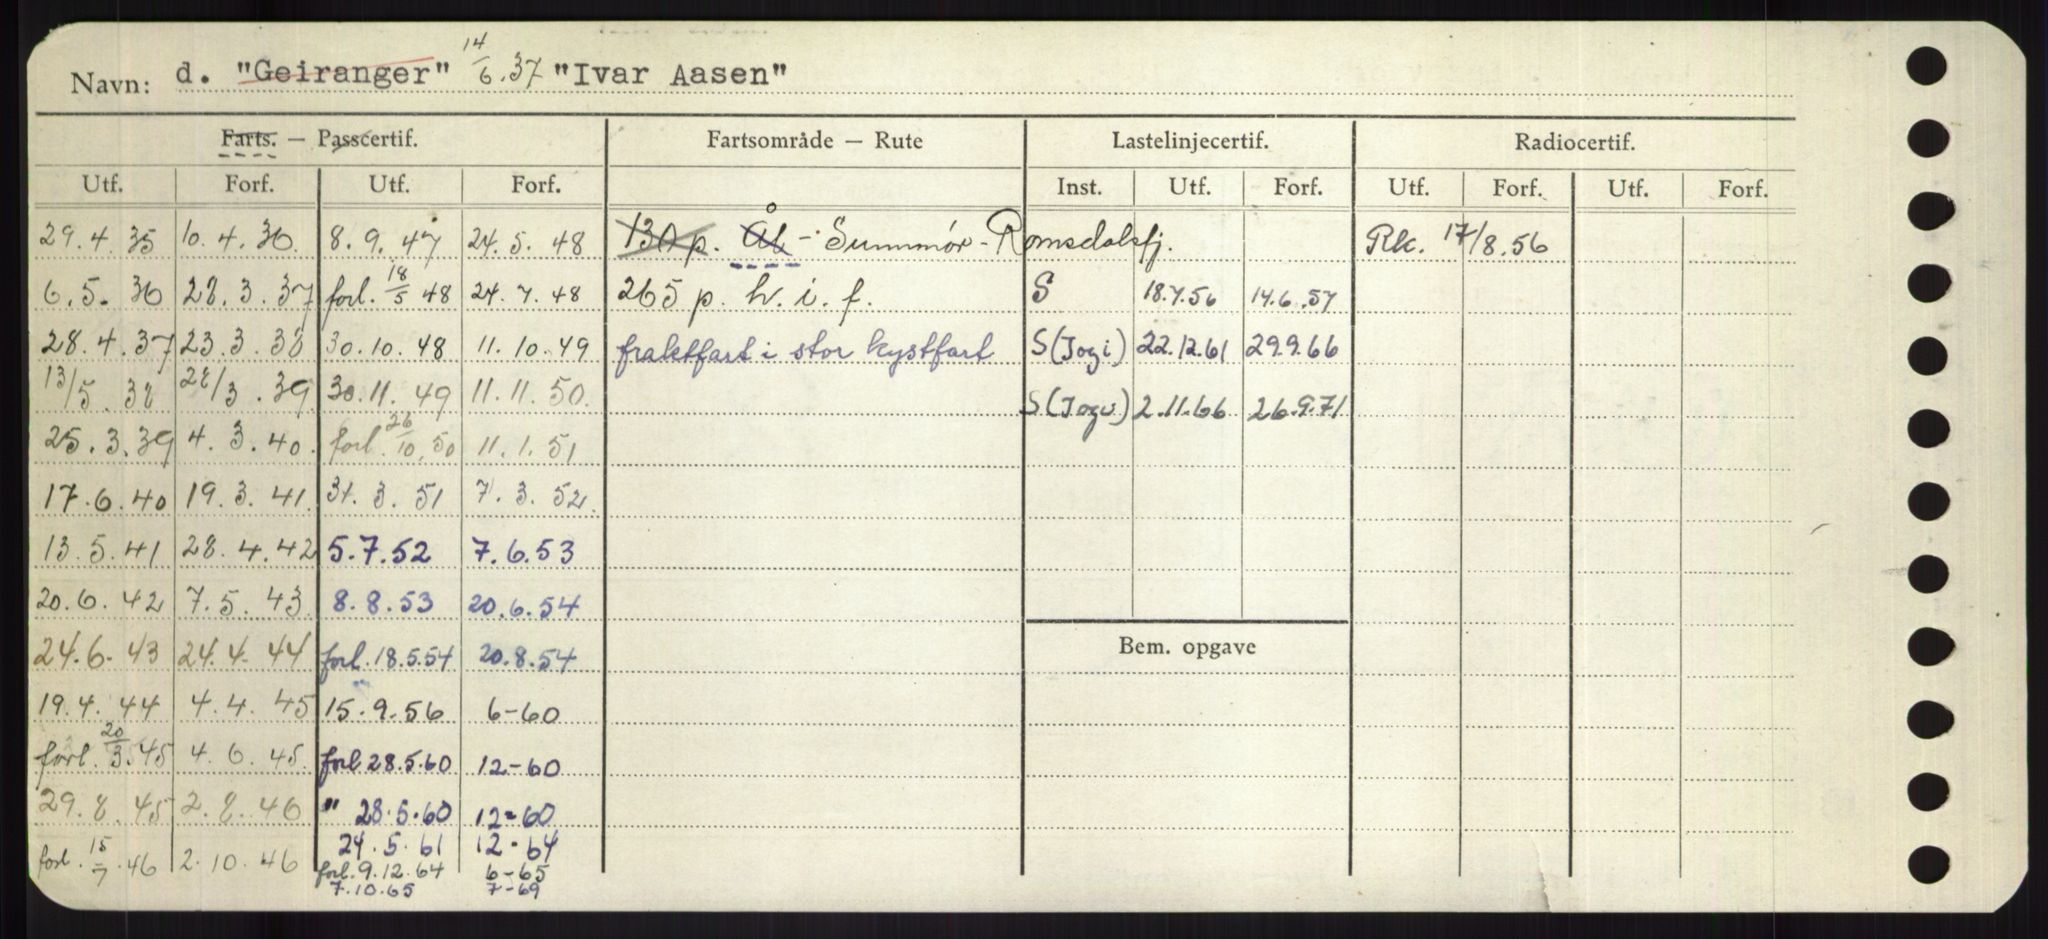 Navn: d. "Geiranger" 14/6.37 "Ivar Aasen"
Farts. — Passcertif. Fartsområde — Rute Lastelinjecertif. Radiocertif.
Utf. Forf. Utf. Forf. Inst. Utf. Forf. Utf. Forf. Utf. Forf.
29.4.35 10.4.36. 8.9.47 24.5.48 130 p. Ål - Sunnmør - Romsdalsfj. Rk. 17/8.56
6.5.36 22.3.37 forl. 18/5 48 24.7.48 265 p. h. i. f. S 18.7.56 14.6.57
28.4.37 23.3.38 30.10.48 11.10.49 fraktfart i stor kystfart S (Jogi) 22.12.61 29.9.66
13/5.38 22/3.39 30.11.49 11.11.50. S (Jogi) 2.11.66 26.9.71
25.3.39 4.3.40. forl. 26/10.50 11.1.51
17.6.40 19.3.41. 31.3.51 7.3.52.
13.5.41 28.4.42 5.7.52 7.6.53
20.6.42 7.5.43. 8.8.53 20.6.54
24.6.43 24.4.44 forl. 18.5.54 20.8.54
Bem. opgave
19.4.44 4.4.45 15.9.56 6-60
forl. 20/3.45 4.6.45. forl 28.5.60 12-60
29.8.45 2.8.46 " 28.5.60 12-60
24.5.61 12-64
forl. 15/7.46 2.10.46 forl. 9.12.64 6-65
7.10.65 7-69